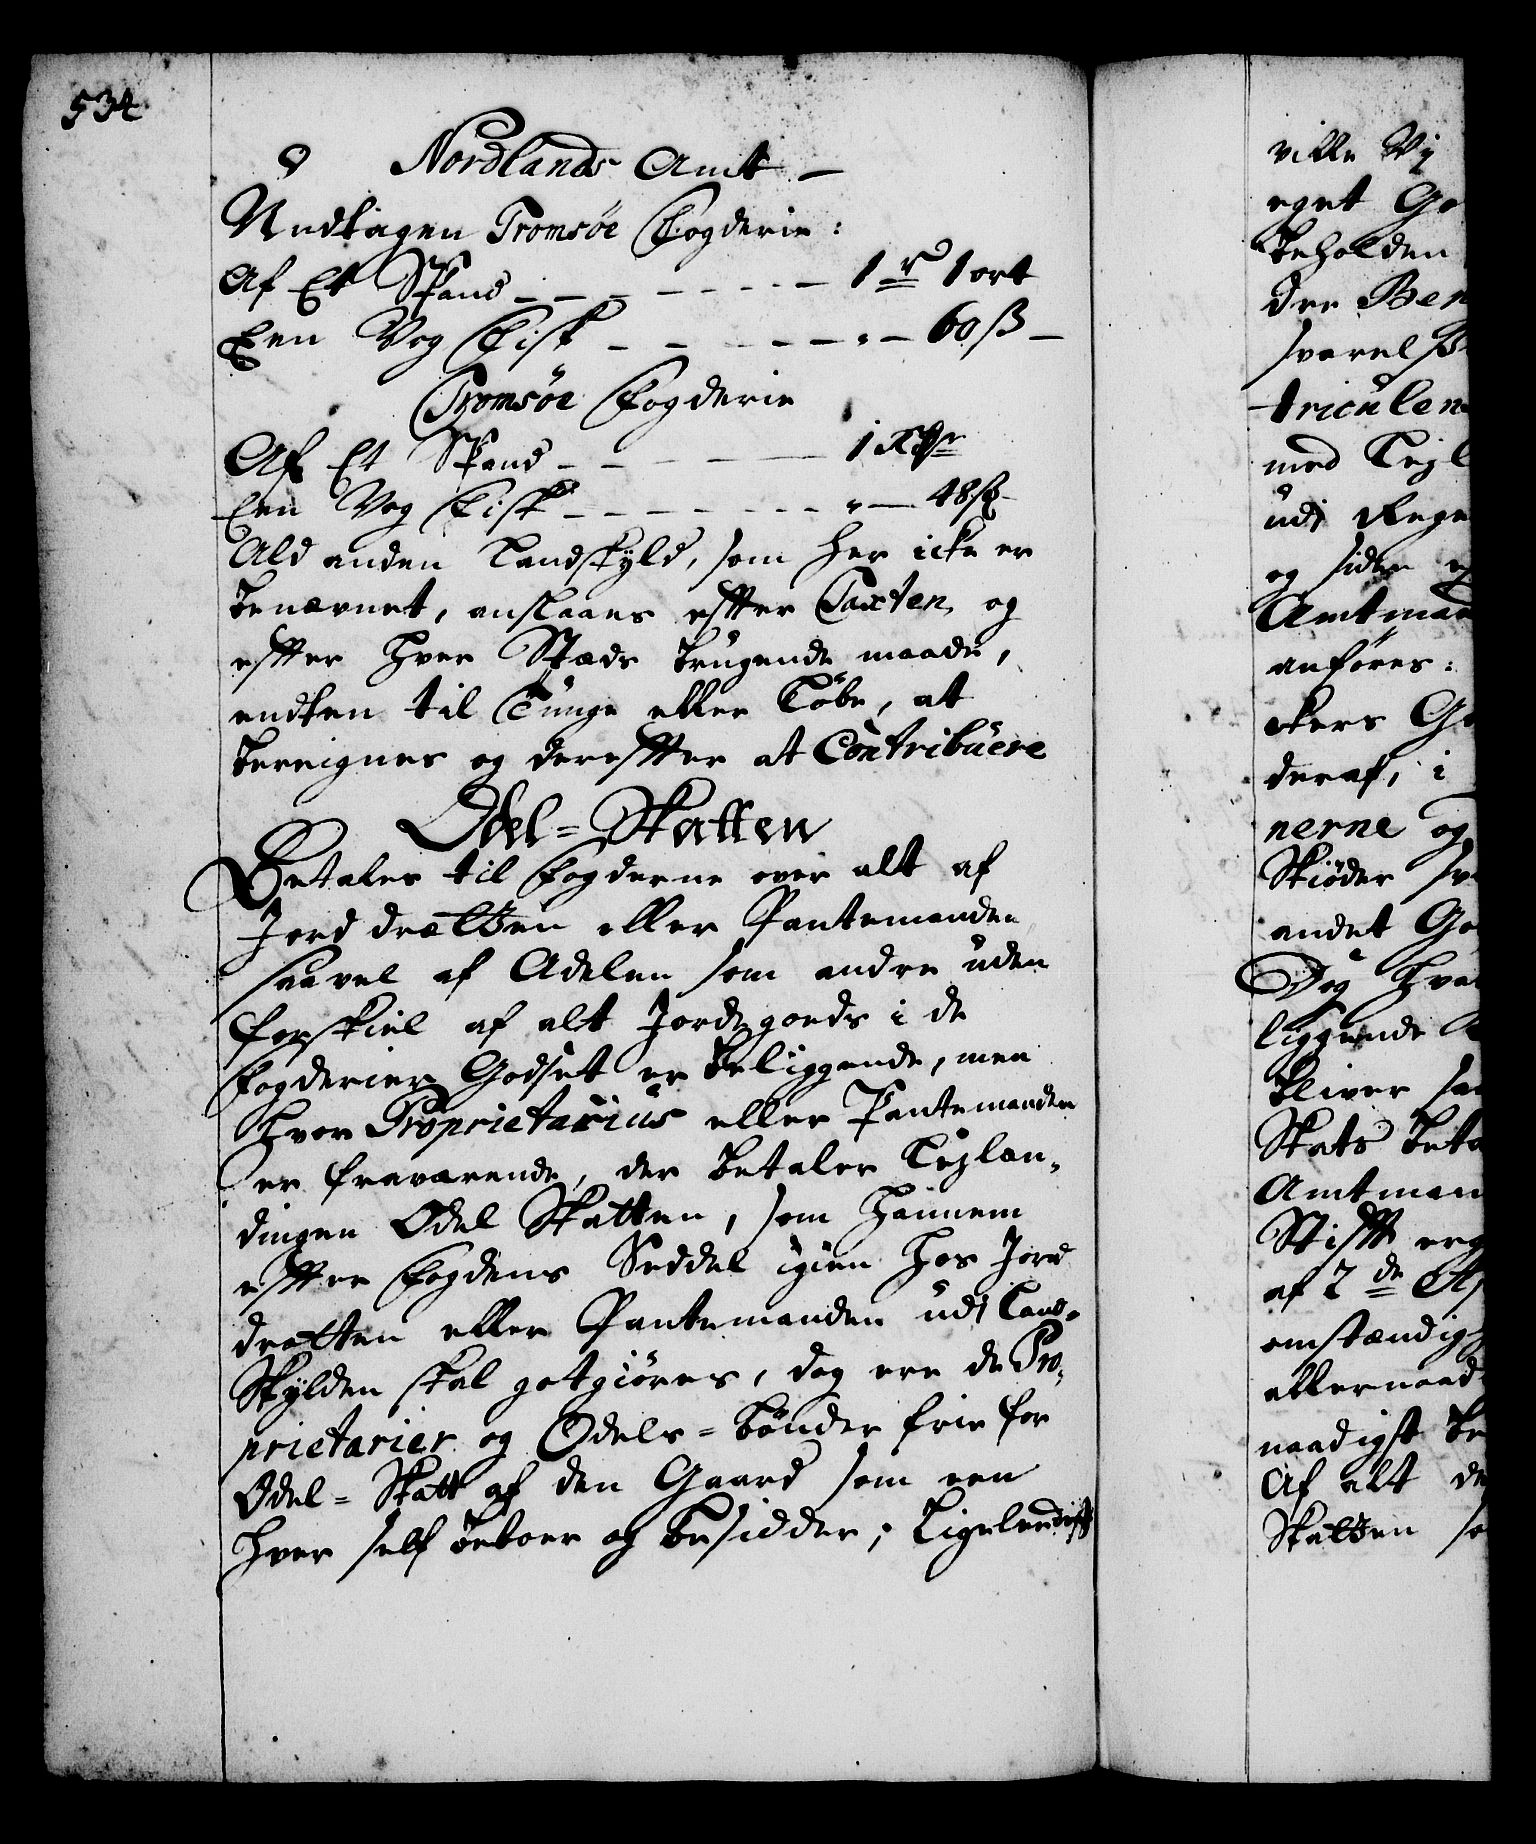 534
Nordlands Amt –
Undtagen Tromsöe Fogderie:
Af Et Spand – – – – – – – 1 rd 1 ort
Een Vog Fisk – – – – – – „ – 60 ß –
Tromsöe Fogderie
Af Et Spand – – – – 1 Rdr
Een Vog Fisk – – – – – – – „ – 48 ß
Ald anden Landskyld, som her icke er
benævnet, anslaaes effter Taxten, og
effter hver Stæds brugende maade,
endten til Tunge eller Löbe, at
bereignes og dereffter at Contribuere
Odel=Skatten
Betales til Fogderne over alt af
Jorddrotten eller Pantemanden
saavel af Adelen som andre uden
forskiel af alt Jordegoeds i de
Fogderier Godset er beliggende, men
hvor Proprietarius eller Pantemanden
er fraværende, der betaler Leylæn„
dingen Odel Skatten, som hannem
effter Fogdens Seddel igien hos Jord
drotten eller Pantemanden udj Land„
Skylden skal gotgiöres, dog ere de Pro„
prietarier og Odels=bönder frie for
Odel=Skatt af den Gaard som een
hver self beboer og besidder; Ligeleedis
ville Vy
eget Go
beholden
dre Ben
svarel
triculen
med Leyl
udj Rege
og siden
Amtman
anföres:
ckers Go
deraf, i
nerne og
Skiöder
andet Go
Dog hva
liggende
bliver saa
Skats beta
Amtman
Stifft
af 2de
omstændig
allernaad
naadigst be
Af alt de
Skatten so